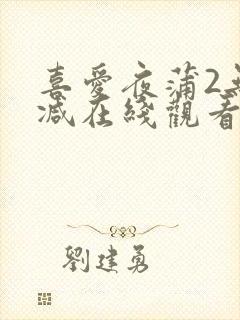 喜愛夜蒲2
減在綫觀看
劉建勇